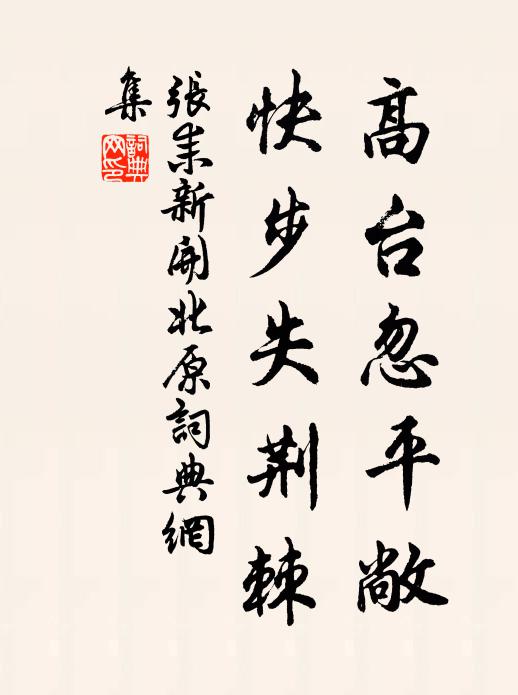 高台忽平敞
快步失荆棘
張耒新開北原詞典網
集
詞典
网印